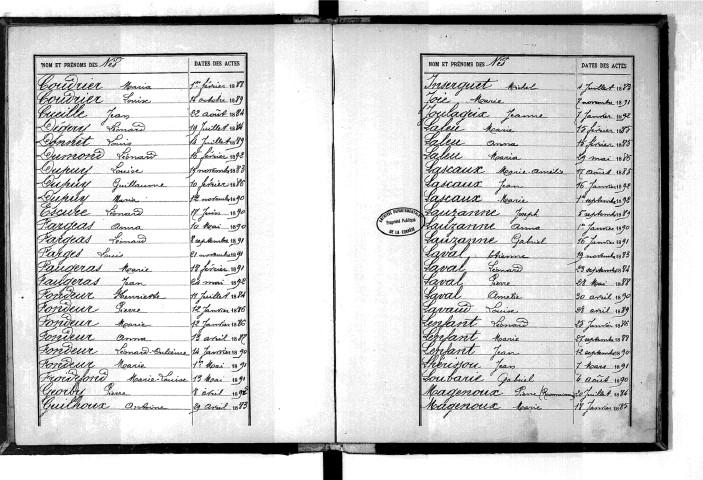 NOM ET PRÉNOMS DES Nés DATES DES ACTES
Coudrier Maria 1er février 1888
Coudrier Louise octobre 1889
Cueille Jean 22 août 1884
Digery Léonard 19 juillet 1886
Donnet Louis 14 juillet 1889
Dumond Léonard 16 février 1892
Dupuy Louise 17 novembre 1888
Dupuy Guillaume 10 février 1886
Dupuy Marie 12 novembre 1890
Escure Léonard 17 juin 1890
Fargeas Anna 10 Mai 1890
Fargeas Léonard 8 septembre 1891
Farges Louis 21 novembre 1891
Faugeras Marie 18 février 1891
Faugeras Jean 24 mai 1892
Fondeur Henriette 11 juillet 1884
Fondeur Pierre 12 janvier 1886
Fondeur Marie 12 janvier 1886
Fondeur Anna 13 avril 1887
Fondeur Léonard 24 janvier 1890
Fondeur Marie 1er Mai 1891
Froidefond Marie-Louise 13 Mai 1891
Gorby Pierre 8 avril 1892
Guilhoux Antoine 29 avril 1883
NOM ET PRÉNOMS DES Nés DATES DES ACTES
Inserguet Michel 4 juillet 1883
Joie Marie 7 novembre 1891
Joulageix Jeanne 7 janvier 1892
Laleu Marie 15 février 1885
Laleu Anna 16 février 1885
Laleu Maria 29 mai 1886
Lascaux Marie-Amélie 17 août 1885
Lascaux Jean 16 janvier 1892
Lascaux Marie 1er septembre 1892
Lauzanne Joseph 5 septembre 1889
Lauzanne Anna 1er janvier 1890
Lauzanne Gabriel 16 janvier 1891
Laval Etienne 19 novembre 1883
Laval Léonard 23 septembre 1884
Laval Pierre 24 Mai 1888
Laval Amélie 30 avril 1890
Lavaud Louise 28 avril 1889
Lenfant Léonard 28 janvier 1886
Lenfant Marie 27 septembre 1888
Lenfant Jean 12 septembre 1890
Jean 7 Mars 1891
Loubarie Gabriel 6 août 1890
Magenoux Pierre 20 juillet 1884
Magenoux Marie 18 janvier 1885
ARCHIVES DÉPARTEMENTALES
Propriété Publique
DE LA CORRÈZE